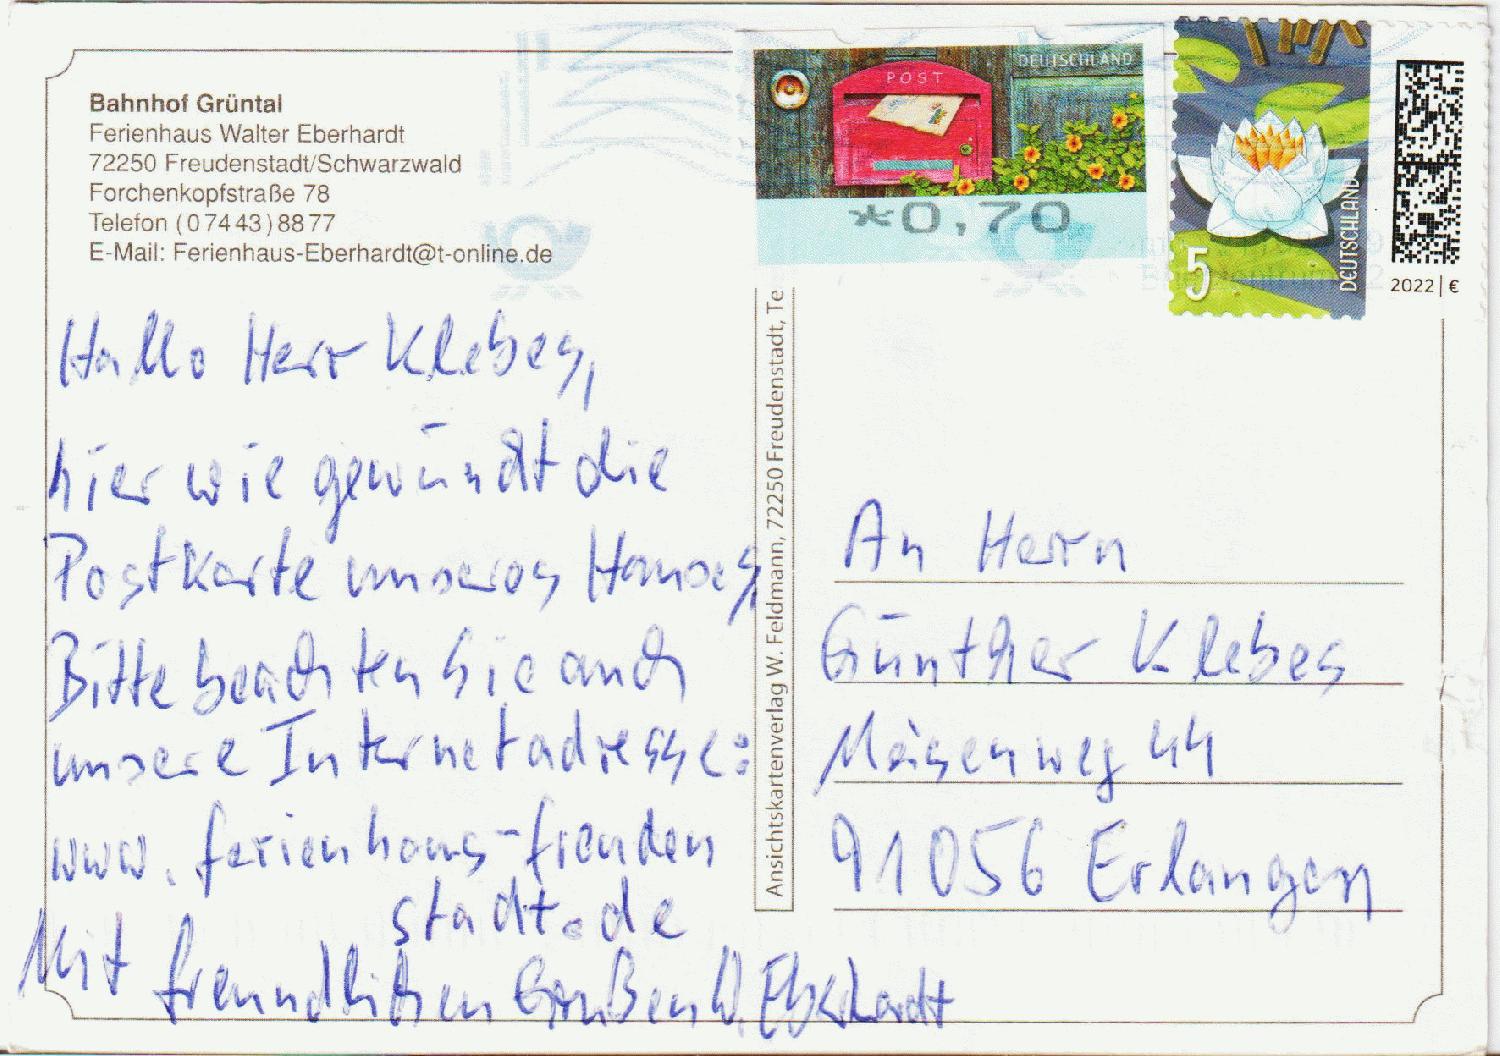 Bahnhof Grüntal
Ferienhaus Walter Eberhardt
72250 Freudenstadt/Schwarzwald
Forchenkopfstraße 78
Telefon (07443) 8877
E-Mail: Ferienhaus-Eberhardt@t-online.de
POST
DEUTSCHLAND
*0,70
5
DEUTSCHLAND
2022 | €
Hallo Herr Klebes,
hier wie gewünscht die
Postkarte unseres Hauses,
Bitte beachten Sie auch
unsere Internetadresse:
www.ferienhaus-freuden
stadt.de
Mit freundlichen Grüßen W. Eberhardt
Ansichtskartenverlag W. Feldmann, 72250 Freudenstadt, Te
An Herrn
Günther Klebes
Meisenweg 44
91056 Erlangen